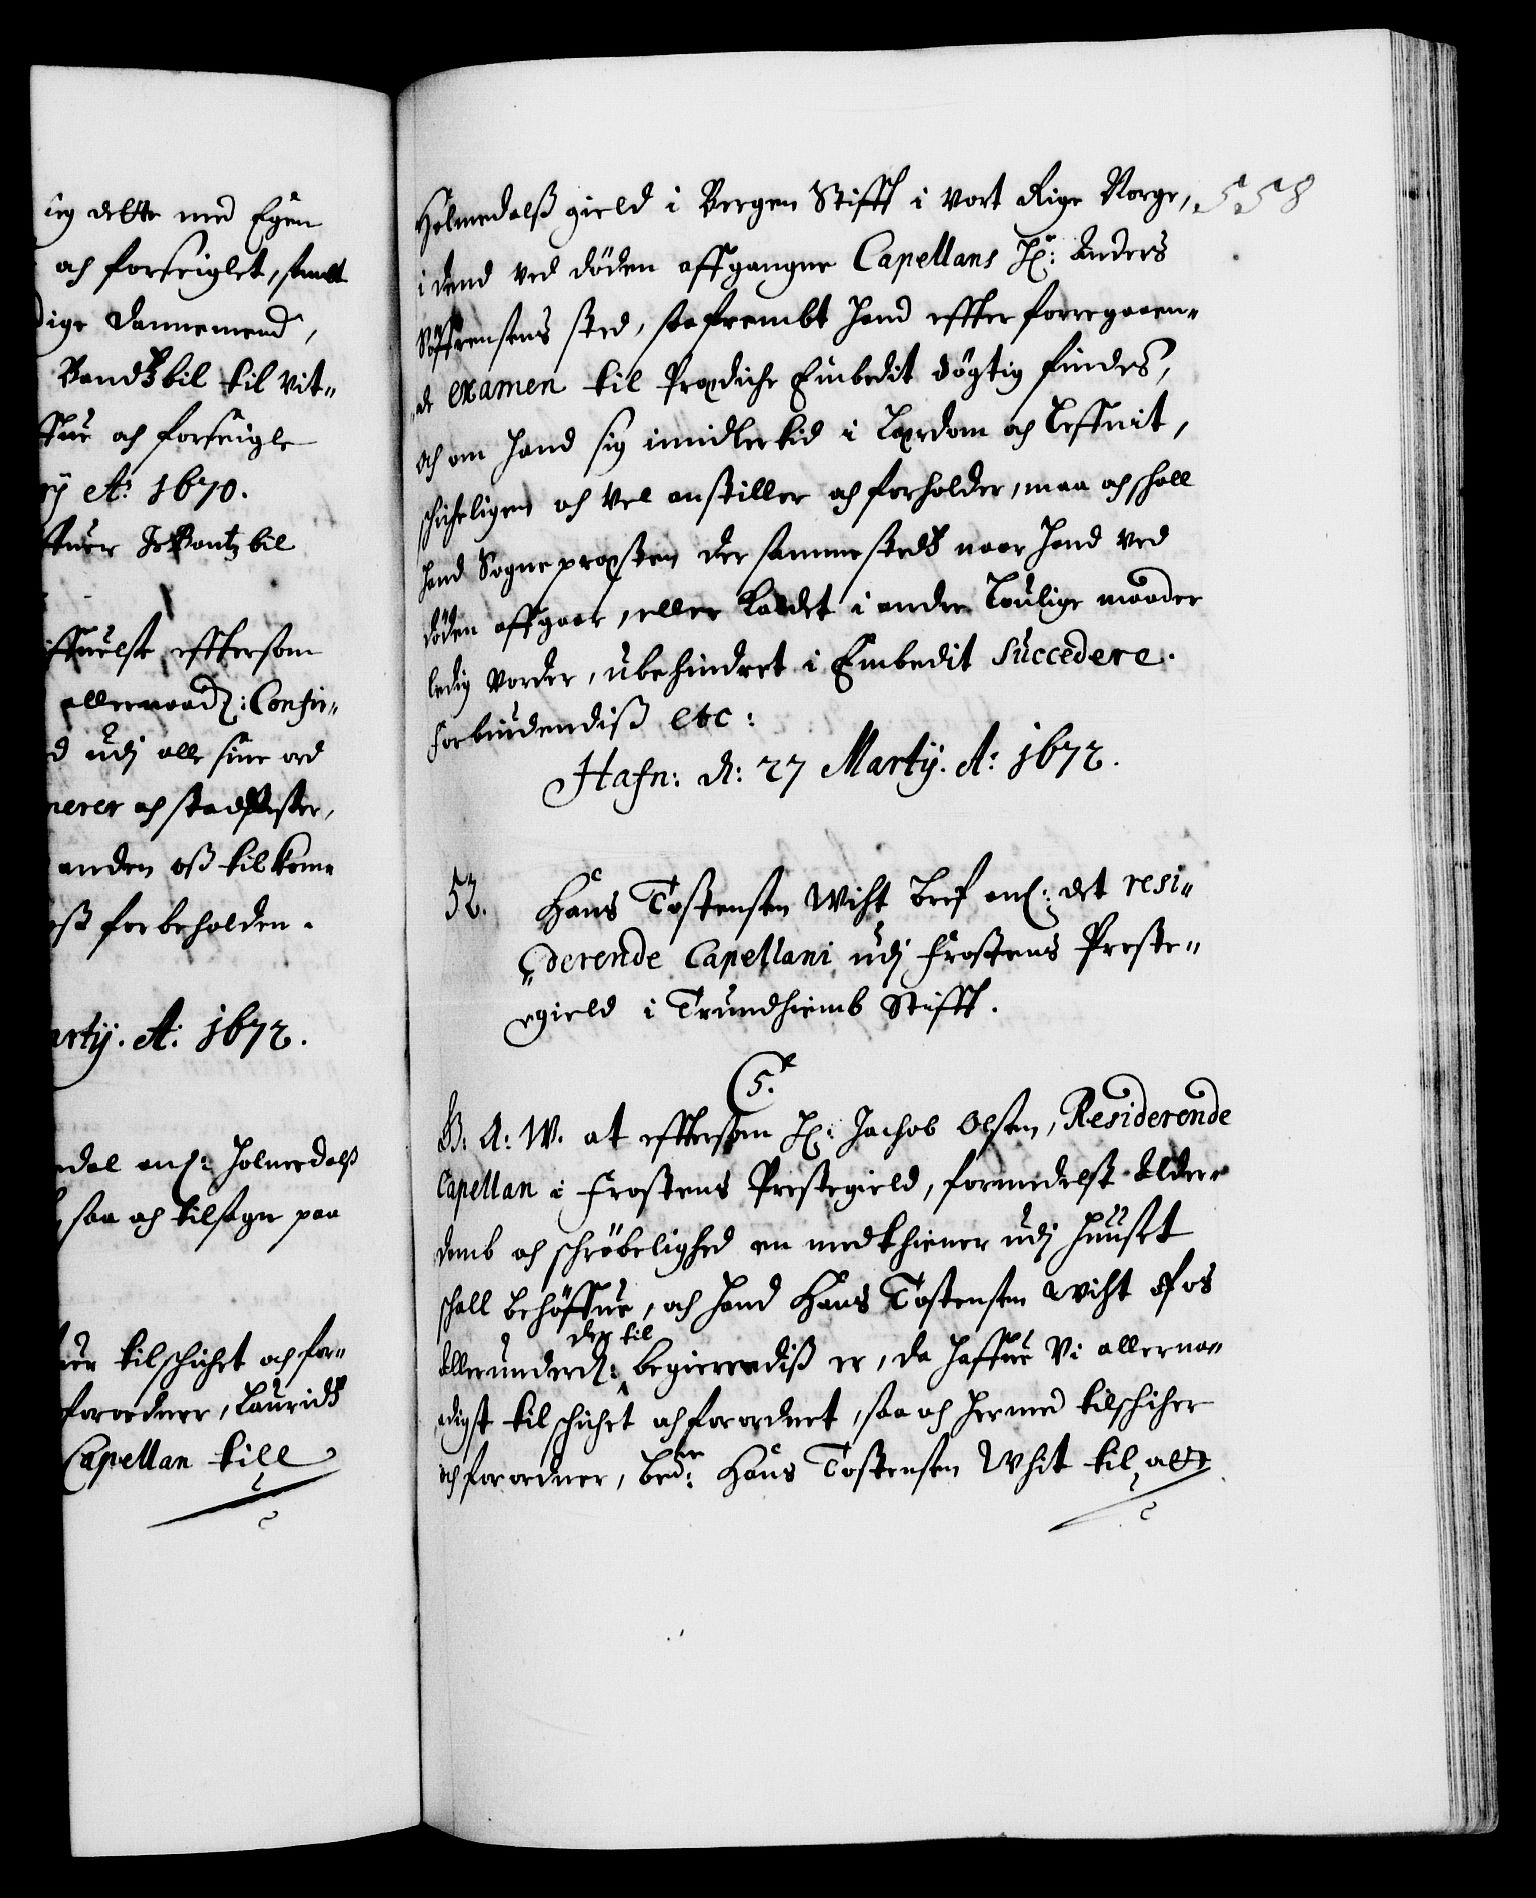 iig dette med Egen
och forseiglet, sambt
dige Dannemend,
til Vit-
och forseigle
ÿ Ao: 1670.
effterson
allernaadl: Confir-
d udj alle sine ord
nerer och stadfester,
anden oß tilkom-
oß forbeholden.
artij. Ao: 1672.
edal anl: Holmedalß
saa och tilsagn paa
uer tilschichet och for-
forordner, Lauridß
Capellan till
Holmedalß gield i Bergen Stifft i Vort Rige Norge, 558
i dend ved döden affgangne Capellans Hr: Anders
Söffrensens sted, saafrembt hand effter forregaaen-
de examen til Prædiche Embedit døgtig findes,
och om hand sig imidlertid i Lærdom och Leffnit,
schicheligen och vel anstiller och forholder, maa och schall
hand Sognepresten der sammestedß naar hand ved
döden affgaar, eller Kaldet i andre Loulige maader
ledig vorder, ubehindret i Embedit Succedere.
Forbiudendiß etc:
Hafn: d: 27 Martij. Ao: 1672.
52. Hans Tostensen Wiht Bref anl: det resi-
derende Capellani udj Frostens Preste-
gield i Trundhiemb Stifft.
C5.
G. A: W. at efftersom Hr: Jachob Olsen, Residerende
Capellan i Frostens Prestegield, formedelst Alder-
domb och schröbelighed en medthiener udj Huuset
schall behöffue, och hand Hans Tostensen Wiht os
der til
allerunderdl: begierendiß er, da haffue Vi allerna-
adigst tilschichet och forordnet, saa och hermed tilschicher
och forordner, bemte: Hans Tostensen Whit til att